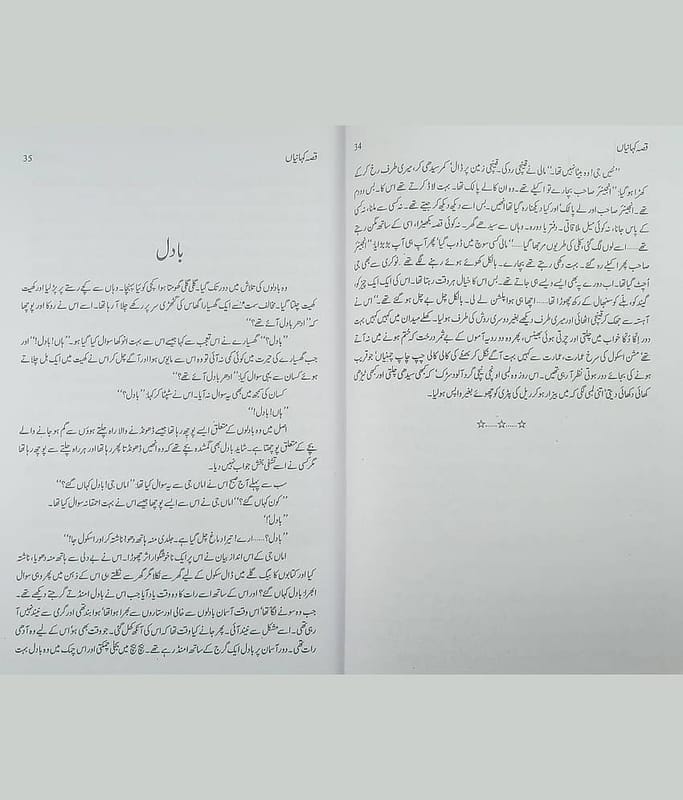 قصہ کہانیاں
34
"نئیں جی! وہ بیٹا نئیں تھا۔" مالی نے قینچی روکی۔ قینچی زمین پر ڈال، کمر سیدھی کر، میری طرف رخ کر کے
کھڑا ہو گیا: "انجینئر صاحب بچارے تو اکیلے تھے۔ وہ ان کا لے پالک تھا۔ بہت لاڈ کرتے تھے اس کا۔ بس دو دم
تھے۔ انجینئر صاحب اور لے پالک! اور کیا دیکھنا رہ گیا تھا انہیں۔ بس اسے دیکھ دیکھ کر جیتے تھے۔ نہ کسی سے ملنا، نہ کسی
کے پاس جانا، نہ کوئی میل ملاقاتی۔ دفتر یا دورہ۔ وہاں سے سیدھے گھر۔ نہ کوئی قصہ نہ بکھیڑا، اسی کے ساتھ مگن رہتے
تھے ..... اے لوں لگ گئی، کلی کی طریوں مرجھا گیا ....." مالی کسی سوچ میں ڈوب گیا، پھر آپ ہی آپ بڑبڑایا "انجینئر
صاحب پھر اکیلے رہ گئے۔ بہت دکھی رہتے تھے بچارے۔ بالکل کھوئے ہوئے رہنے لگے تھے۔ نوکری سے بھی جی
اُچٹ گیا تھا۔ اب دورے پہ بھی ایسے ویسے ہی جاتے تھے۔ بس اس کا خیال ہر وقت رہتا تھا۔ اس کی ایک ایک چیز کو،
گیند کو، بلے کو سنبھال کے رکھ چھوڑا تھا ..... اچھا ہی ہوا پنشن لے لی۔ بالکل چل بے چل ہو گئے تھے۔" اس نے
آہستہ سے جھک کر قینچی اٹھائی اور میری طرف دیکھے بغیر دوسری روش کی طرف ہو لیا۔ کھلے میدان میں کہیں کہیں بہت
دور اِکّا دُکّا خواب میں چلتی اور چرتی ہوئی بھینس، پھر وہ دو رویہ آموں کے بے ثمر درخت کہ ختم ہونے میں نہ آتے
تھے، مشن اسکول کی سرخ عمارت، عمارت سے کہیں بہت آگے نکل کر بھٹے کی کالی کالی چپ چاپ چمنیاں، جو قریب
ہونے کی بجائے دور ہوتی نظر آ رہی تھیں۔ اس روز وہ لمبی اونچی نیچی گرد آلود سڑک، کہ کبھی سیدھی چلتی اور کبھی ٹیڑھی
کھائی دکھائی دیتی، اتنی لمبی لگی کہ میں بیزار ہو کر ریل کی پٹری کو چھوئے بغیر واپس ہو لیا۔
☆.....☆.....☆
قصہ کہانیاں
35
بادل
وہ بادلوں کی تلاش میں دور تک گیا۔ گلی گلی گھومتا ہوا کچی کوئیا پہنچا۔ وہاں سے کچے رستے پر پڑ لیا اور کھیت
کھیت چلتا گیا۔ مخالف سمت سے ایک گھسیارا گھاس کی گٹھڑی سر پر رکھے چلا آ رہا تھا۔ اسے اس نے روکا اور پوچھا
کہ "ادھر بادل آئے تھے؟"
"بادل؟" گھسیارے نے اس تعجب سے کہا جیسے اس سے بہت انوکھا سوال کیا گیا ہو۔ "ہاں! بادل!" اور
جب گھسیارے کی حیرت میں کوئی کمی نہ آئی تو وہ اس سے مایوس ہوا اور آگے چل کر اس نے کھیت میں ایک ہل چلاتے
ہوئے کسان سے یہی سوال کیا: "ادھر بادل آئے تھے؟"
کسان کی سمجھ میں بھی یہ سوال نہ آیا۔ اس نے سٹپٹا کر کہا: "بادل؟"
"ہاں! بادل!"
اصل میں وہ بادلوں کے متعلق ایسے پوچھ رہا تھا جیسے ڈھونڈنے والا راہ چلتے ہوؤں سے گم ہو جانے والے
بچے کے متعلق پوچھتا ہے۔ شاید بادل بھی گمشدہ بچے تھے کہ وہ انہیں ڈھونڈتا پھر رہا تھا اور ہر راہ چلتے سے پوچھ رہا تھا
مگر کسی نے اسے تشفی بخش جواب نہیں دیا۔
سب سے پہلے آج صبح اس نے اماں جی سے یہ سوال کیا تھا: "اماں جی! بادل کہاں گئے؟"
"کون کہاں گئے؟" اماں جی نے اس سے ایسے پوچھا جیسے اس نے بہت احمقانہ سوال کیا تھا۔
"بادل!"
"بادل؟ ..... ارے! تیرا دماغ چل گیا ہے۔ جلدی منہ ہاتھ دھو! ناشتہ کر اور اسکول جا!"
اماں جی کے اس انداز بیان نے اس پر ایک ناخوشگوار اثر چھوڑا۔ اس نے بے دلی سے ہاتھ منہ دھویا، ناشتہ
کیا اور کتابوں کا بیگ گلے میں ڈال سکول کے لیے گھر سے نکلا مگر گھر سے نکلتے ہی اس کے ذہن میں پھر وہی سوال
ابھرا، بادل کہاں گئے؟ اور اس کے ساتھ اسے رات کا وہ وقت یاد آیا جب اس نے بادل امنڈتے گرجتے دیکھے تھے۔
جب وہ سونے لگا تھا، اس وقت آسمان بادلوں سے خالی اور ستاروں سے بھرا ہوا تھا، ہوا بند تھی اور گرمی سے نیند نہیں آ
رہی تھی۔ اسے مشکل سے نیند آئی۔ پھر جانے کیا وقت تھا کہ اس کی آنکھ کھل گئی۔ جو وقت بھی ہو اس کے لیے وہ آدھی
رات تھی۔ دور آسمان پر بادل ایک گرج کے ساتھ امنڈ رہے تھے۔ بیچ بیچ میں بجلی چمکتی اور اس چمک میں وہ بادل بہت